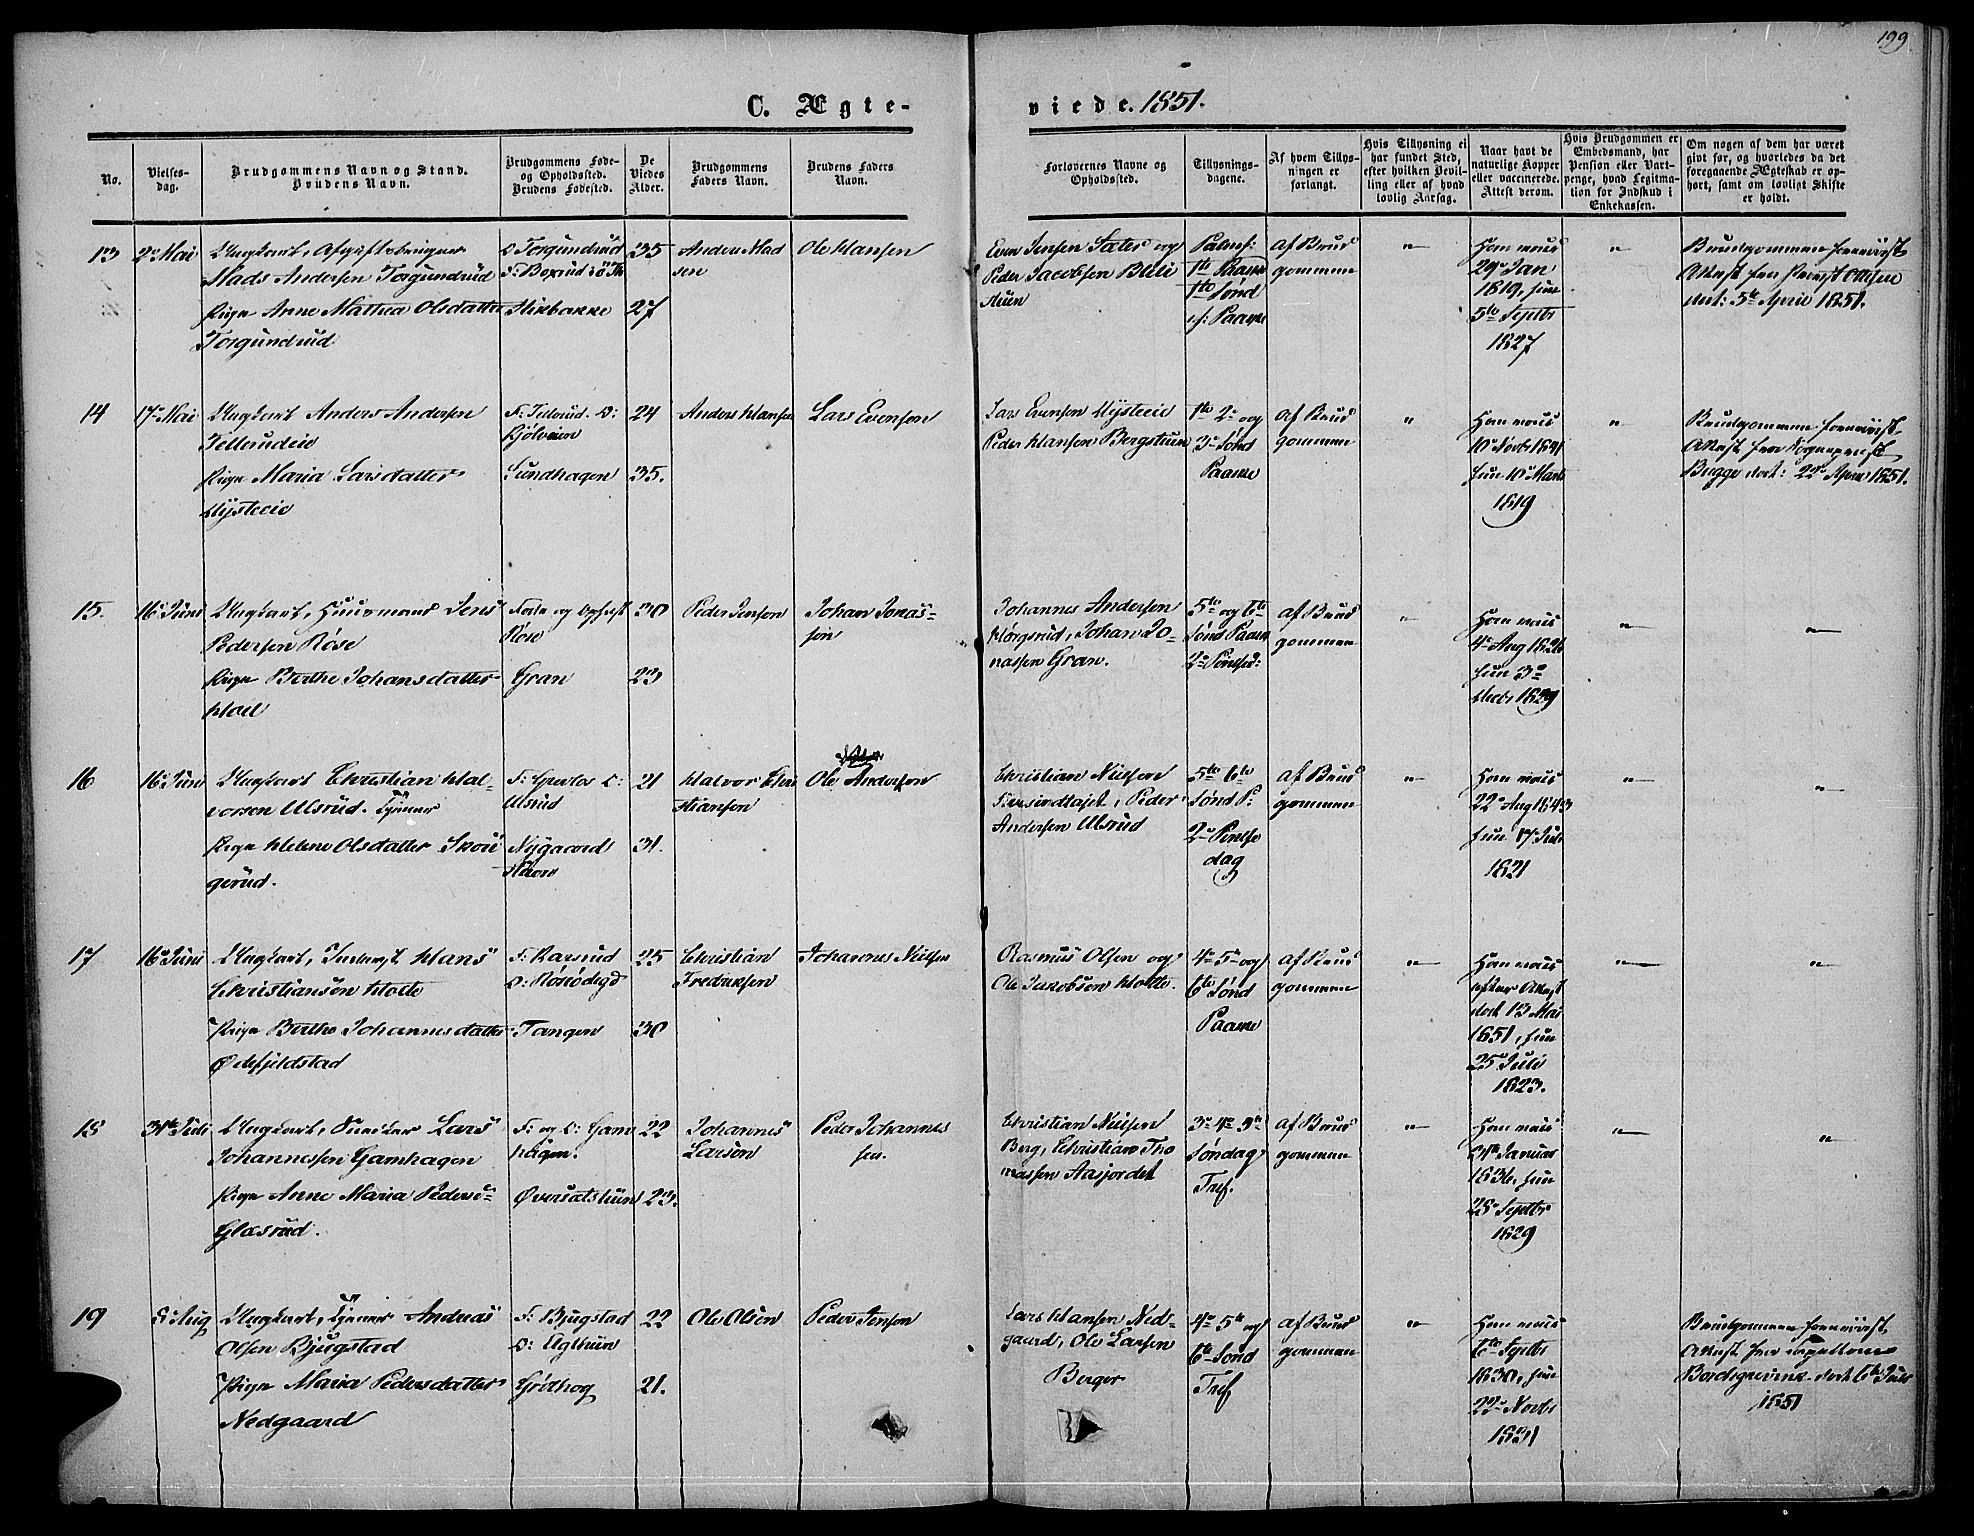 199
C. Ægte-
viede. 1851.
No.
Vielses-
dag.
Brudgommens Navn og Stand.
Brudens Navn.
Brudgommens Føde-
og Opholdssted.
Brudens Fødested.
De
Viedes
Alder.
Brudgommens
Faders Navn.
Brudens Faders
Navn.
Forlovernes Navne og
Opholdssted.
Tillysnings-
dagene.
Af hvem Tillys-
ningen er
forlangt.
Hvis Tillysning ei
har fundet Sted,
efter hvilken Bevil-
ling eller af hvad
lovlig Aarsag.
Naar havt de
naturlige Kopper
eller vaccinerede.
Attest derom.
Hvis Brudgommen er
Embedsmand, har
Pension eller Vart-
penge, hvad Legitima-
tion for Indskud i
Enkekassen.
Om nogen af dem har været
givt før, og hvorledes da det
foregaaende Ægteskab er op-
hørt, samt om lovligt Skifte
er holdt.
13 2 Mai Ungkarl,
Mads Andersen Torgundrud
Pige Anne Mathea Olsdatter
Torgundrud
O Torgundrud
Stikbakke
35
27
Anders Mad
sen
Ole Hansen
Even Jensen Sæter og
Peder Jacobsen Blili
Palms:
1te Paaske
1te Sønd
ef: Paaske
af Brud
gommen
"
Ham
29 Jan
1819, hun
5te Septbr
1827
"
Brudgommen
Attest fra
dat: 5te April 1851.
14 17 Mai Ungkarl Anders Andersen
Tellerudeie
Pige Maria Larsdatter
Nysteeie
O:
Sundhagen
24
35.
Anders Hansen
Lars Evensen
Lars Evensen Nysteeie
Peder Hansen Bergstuen
1te 2 og
3 Sønd
Paaske
af Brud
gommen
"
Ham
10 Novbr 1841
hun 10 Marts
1819
"
Brudgommen
Attest fra
Bugge dat: 22 April 1851.
15. 16 Juni Ungkarl, Huusmand Jens
Pedersen Røse
Pige Berthe Johansdatter
Hoel
Røse
Gran
30
23
Peder Jensen
Johan Jonas-
sen
Johannes Andersen
Hørgsrud, Johan Jo-
nassen Gran.
5te og 6te
Sønd Paaske
2 Pintsed:
af Brud
gommen
"
Ham
4 Aug 1826
hun 3
1829
"
"
16 16 Juni Ungkarl Christian Hal-
vorsen Ulsrud. Tjener
Pige Helene Olsdatter Skou
gerud.
O:
Ulsrud
Nygaard
21
31.
Halvor Chri
stiansen
Ole Andersen
Christian Nielsen
Peder
Andersen Ulsrud
5te 6te
Sønd P:
2 Pintse
dag
af Brud
gommen
"
Ham
22 Aug 1843
hun 17 Juli
1821
"
"
17 16 Juni Ungkarl, Hans
Christiansen Holte
Pige Berthe Johannesdatter
Ødefjeldstad
F: Karsrud
Tangen
25
30
Christian
Fredriksen
Johannes Nielsen
Rasmus Olsen og
Ole Jakobsen Holte.
4 5 og
6te Sønd
Paaske
af Brud
gommen
"
Ham
efter Attest
dat 13 Mai
1851, hun
25 Juli
1823.
"
"
18 31te Juli Ungkarl, Lars
Johannessen Gamhagen
Pige Anne Maria Peders:
Glæsrud.
F: og O: Gam
hagen.
Øversatstuen
22
23.
Johannes
Larsen
Peder Johannes
sen.
Christian Nielsen
Berg, Christian Tho
massen Aasjordet
3 4 5te
Søndag
Tref.
af Brud
gommen
"
Ham
31te Januar
1836, hun
28 Septbr
1829
"
"
19 8 Aug Ungkarl, Tjener Andreas
Olsen Bjugstad
Pige Maria Pedersdatter
Nedgaard
F: Bjugstad
O:
Grøthog
22
21.
Ole Olsen
Peder Jensen
Lars Hansen Ned-
gaard, Ole Larsen
Berger
4 5te og
6te Sønd
Tref
af Brud
gommen
"
Ham
6te Septbr
1830, hun
22 Novbr
1831
Brudgommen
Attest fra Capellan
dat 6te Juli
1851